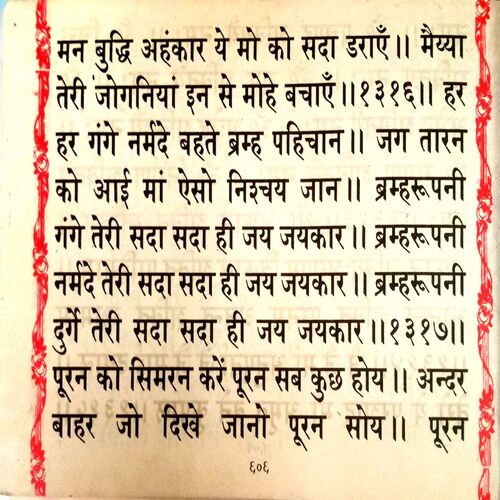 मन बुद्धि अहंकार ये मो को सदा डराएँ।। मैय्या
तेरी जोगनियां इन से मोहे बचाएँ।।१३१६।। हर
हर गंगे नर्मदे बहते ब्रम्ह पहिचान।। जग तारन
को आई मां ऐसो निश्चय जान।। ब्रम्हरूपनी
गंगे तेरी सदा सदा ही जय जयकार।। ब्रम्हरूपनी
नर्मदे तेरी सदा सदा ही जय जयकार।। ब्रम्हरूपनी
दुर्गे तेरी सदा सदा ही जय जयकार।।१३१७।।
पूरन को सिमरन करें पूरन सब कुछ होय।। अन्दर
बाहर जो दिखे जानो पूरन सोय।। पूरन
६०६